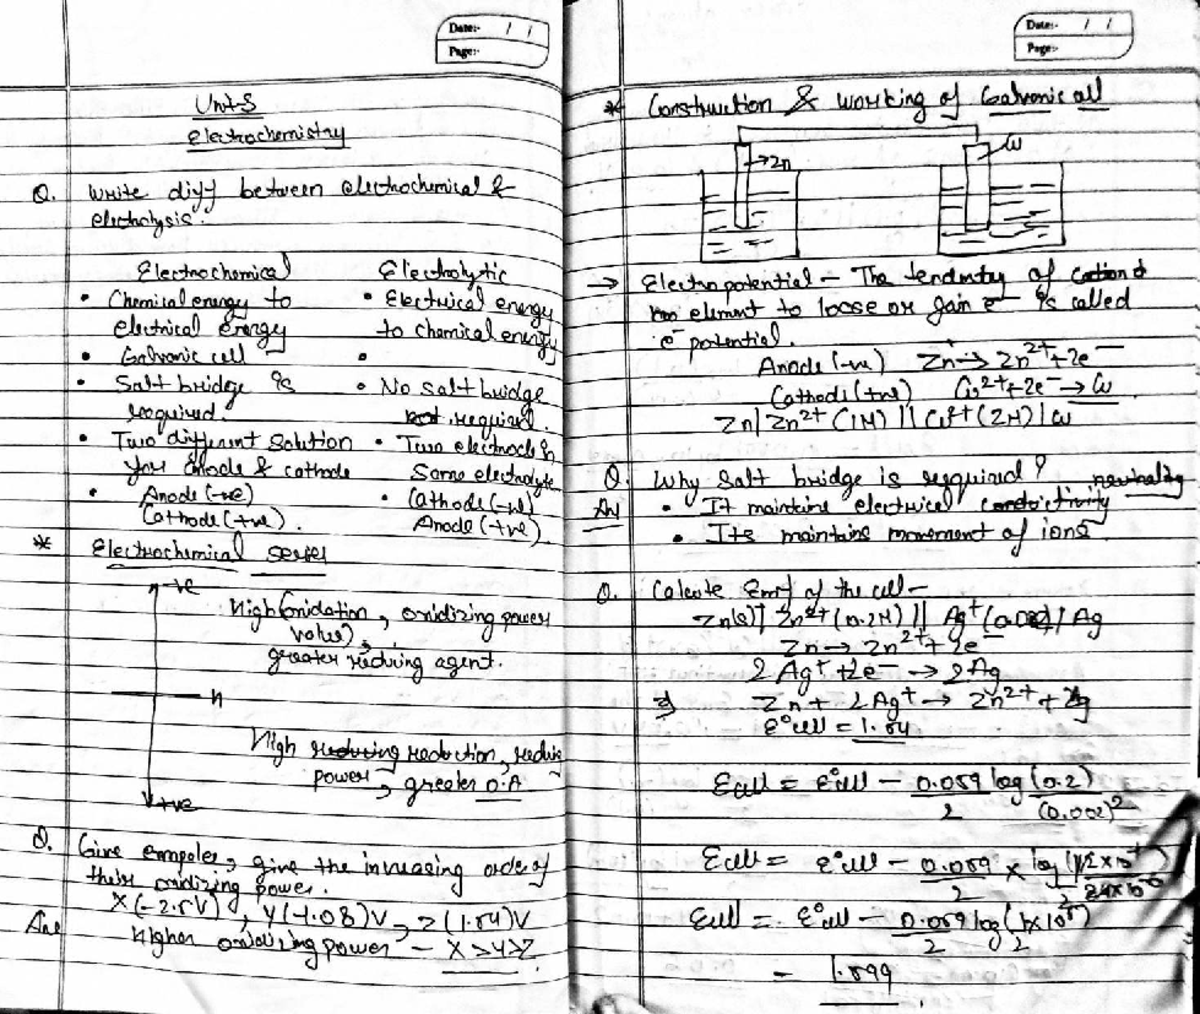 Date:- / /
Page:-
Unit-5
Electrochemistry
Q. Write diff between electrochemical &
electrolysis.
Electrochemical Electrolytic
• Chemical energy to • Electrical energy
electrical energy to chemical energy
• Galvanic cell •
• Salt bridge is • No salt bridge
required. required.
• Two different solution • Two electrode in
for anode & cathode Same electrolyte
• Anode (-ve) • Cathode (-ve)
Cathode (+ve). Anode (+ve).
* Electrochemical series
-ve
High (oxidation, oxidizing power
value),
greater reducing agent.
H
High reducing reduction, reducing
power, greater O.A
+ve
Q. Give examples, give the increasing order of
their oxidizing power.
X(-2.5V), Y(-1.08)V, Z(1.54)V
Ans Higher oxidizing power - X>Y>Z.
Date:- / /
Page:-
* Construction & working of Galvanic cell
→Zn
Cu
→ Electro potential - The tendency of
element to loose or gain e- is called
e- potential.
Anode (-ve) Zn → Zn2+ + 2e-
Cathode (+ve) Cu2+ + 2e- → Cu
Zn/Zn2+ (1M) || Cu2+ (2M) | Cu
Q. Why Salt bridge is required?
neutrality
Ans • It maintains electrical conductivity
• Its maintains movement of ions.
Q. Calcute Emf of the cell-
Zn(s)| Zn2+ (0.2M) || Ag+ / Ag
Zn → Zn2+ + 2e-
2Ag+ + 2e- → 2Ag
Zn + 2Ag+ → Zn2+ + 2Ag
E°cell = 1.54
Ecell = E°cell - 0.059 log (0.2)
2 (0.002)2
Ecell = E°cell - 0.059 × log
2
Ecell = E°cell - 0.059 log
2
= 1.899